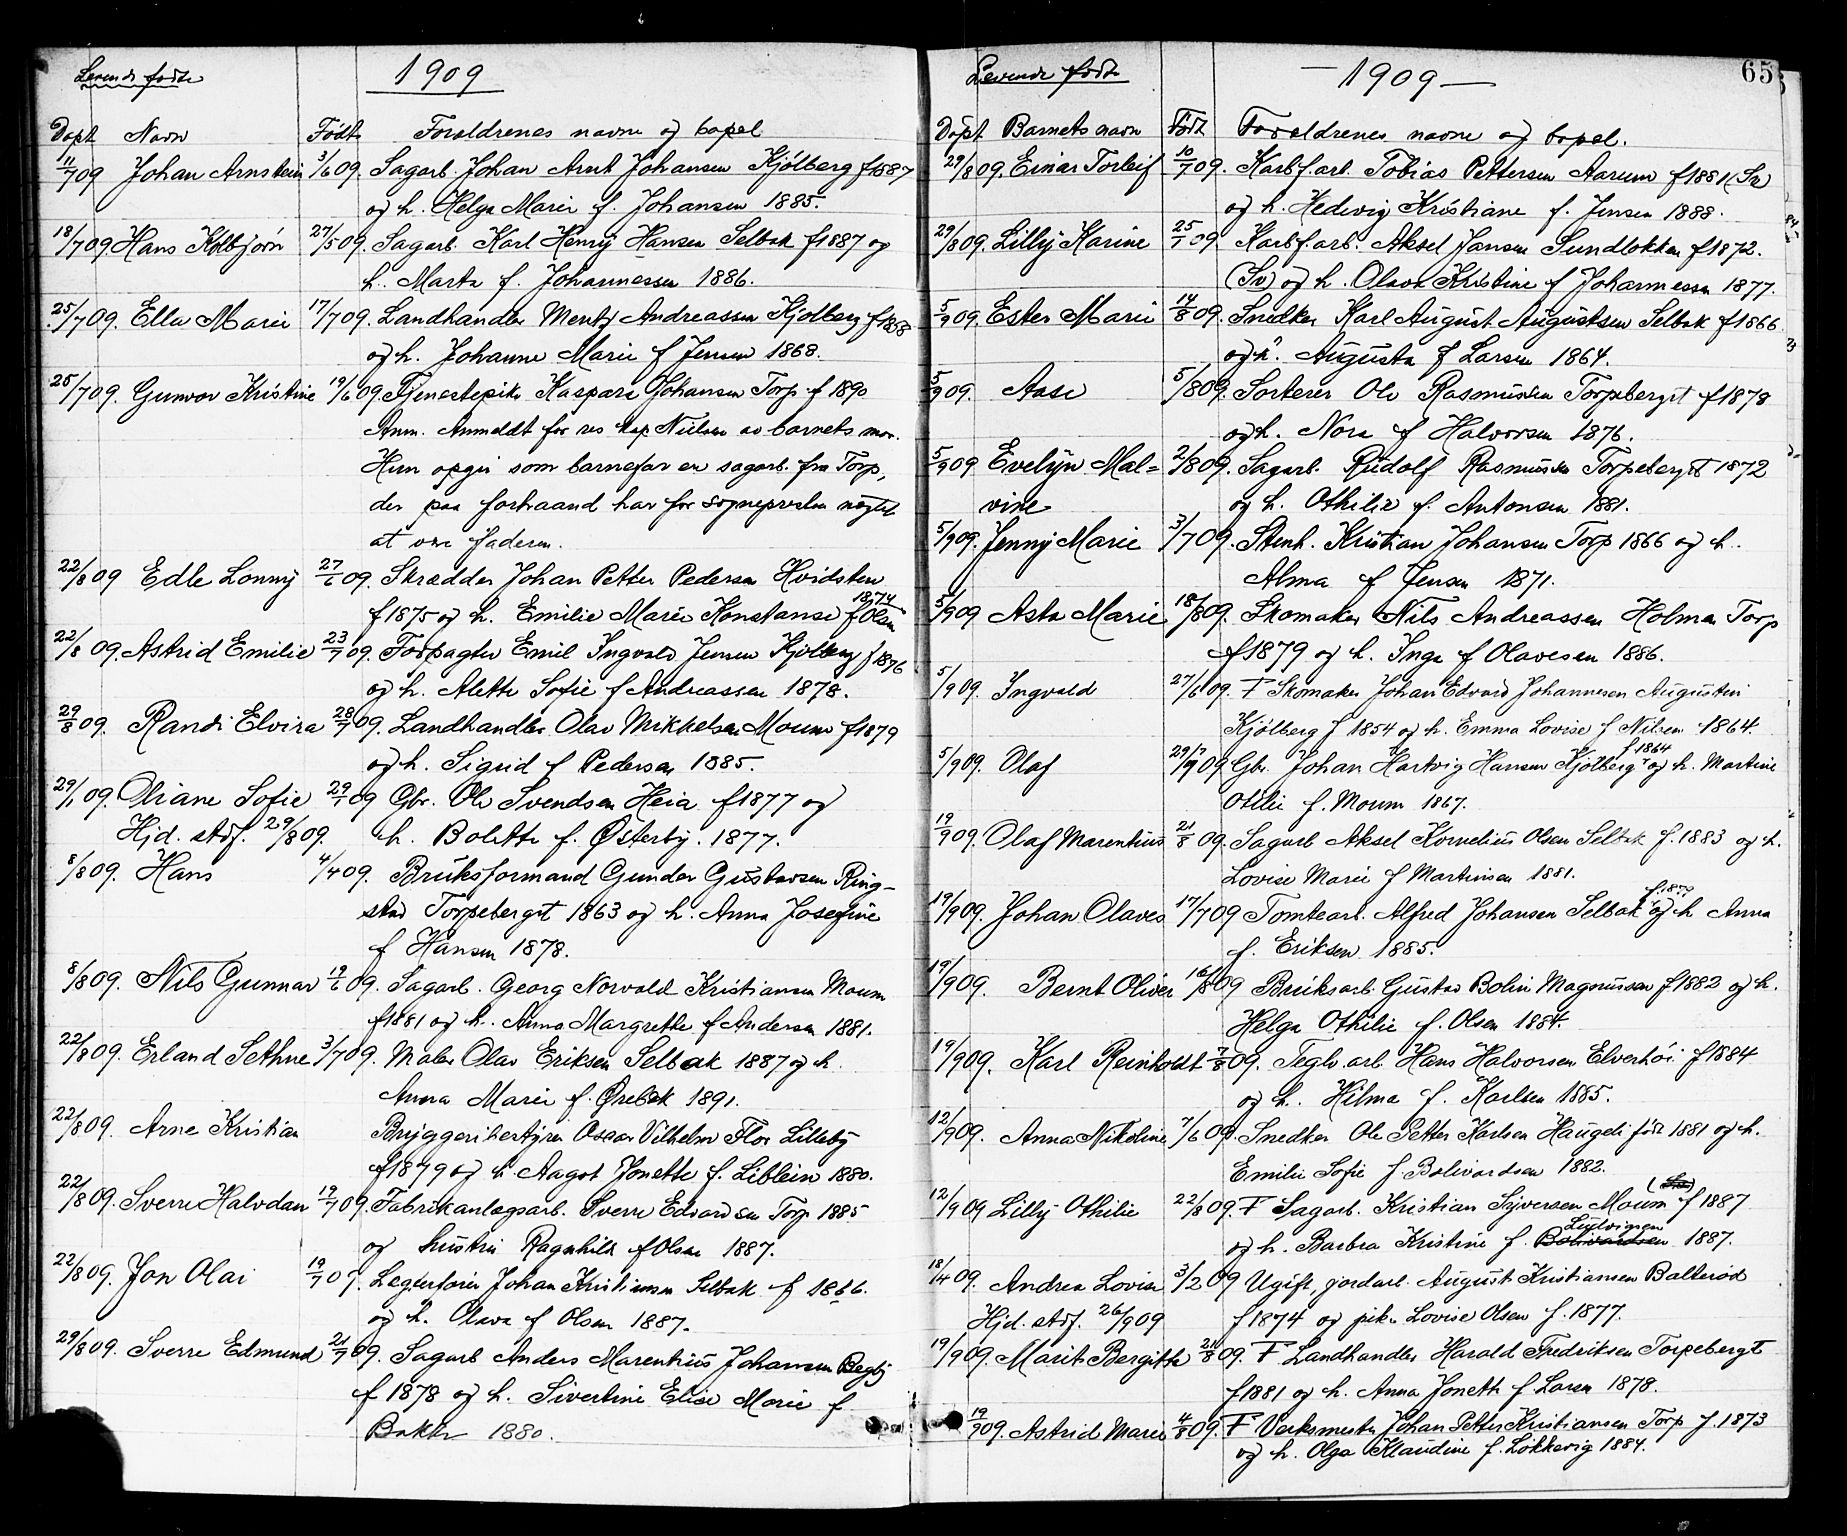 Levende fødte 1909
Døpt Navn Født Foreldrenes navne og bopel
11/7 09 Johan Arnstein 3/6 09. Sagarb. Johan Arnt Johansen Kjølberg f 1887
og h. Helga Marie f. Johansen 1885.
18/7 09 Hans Kolbjørn 27/5 09. Sagarb. Karl Henry Hansen Selbak f 1887 og
h. Marta f. Johannessen 1886.
25/7 09. Ella Marie 17/7 09. Landhandler Mentz Andreassen Kjølberg f 1868
og h. Johanne Marie f Jensen 1868.
25/7 09. Gunvor Kristine 19/6 09. Tjenestepike Kaspara Johansen Torp f 1890
Anm. Anmeldt for res kap Nielsen av barnets mor.
Hun opgir som barnefar en sagarb. fra Torp,
der paa forhaand har for sognepresten nægtet
at være faderen.
22/8 09 Edle Lonny 27/6 09. Skrædder Johan Petter Pedersen Hvidsten
f 1875 og h. Emilie Marie Konstanse f Olsen 1874
22/8 09. Astrid Emilie 23/7 09. Forpagter Emil Ingvald Jensen Kjølberg f 1876
og h. Alette Sofie f Andreassen 1878.
29/8 09. Randi Elvira 28/7 09. Landhandler Olav Mikkelsen Moum f 1879
og h. Sigrid f Pedersen 1885.
29/1 09. Oliane Sofie 29/1 09 Gbr. Ole Svendsen Heia f 1877 og
Hjd. stdf. 29/8 09. h. Bolette f. Østerby. 1877.
8/8 09. Hans 4/4 09. Bruksformand Gunder Gustavsen Ring-
stad Torpeberget 1863 og h. Anna Josefine
f Hansen 1878.
8/8 09. Nils Gunnar 19/6 09. Sagarb. Georg Norvald Kristiansen Moum
f 1881 og h. Anna Margrethe f Andersen 1881.
22/8 09. Erland Sethne 3/7 09. Maler Olav Eriksen Selbak 1887 og h.
Anna Marie f. Ørebek 1891.
22/8 09. Arne Kristian Bryggeribestyrer Oscar Vilhelm Flor Lilleby
f 1879 og h. Aagot Jonette f. Liblein 1880.
22/8 09. Sverre Halvdan 19/7 09. Fabrikanlægsarb. Sverre Edvardsen Torp 1885
og hustru Ragnhild f Olsen 1887.
22/8 09. Jon Olai 19/7 09. Legerforer Johan Kristiansen Selbak f 1866.
og h. Olava f Olsen 1887.
29/8 09. Sverre Edmund 21/7 09. Sagarb Anders Marentius Johansen Begby
f 1878 og h. Sivertine Elise Marie f
Bakke 1880.
Levende fødte 1909 65
Døpt Barnets navn Født Foreldrenes navne og bopel.
29/8 09. Einar Torleif 10/7 09. Karbf. arb. Tobias Pettersen Aarum f 1881 (Sv)
og h. Hedevig Kristiane f. Jensen 1888.
29/8 09. Lilly Karine 25/7 09 Karbf. arb. Aksel Jansen Sundløkken f 1872.
(Sv) og h. Olava Kristine f Johannessen 1877.
5/9 09. Ester Marie 14/8 09. Snedker Karl August Augustsen Selbak f 1866
og h. Augusta f Larsen 1864.
5/9 09. Aase 5/8 09. Sorterer Ole Rasmussen Torpeberget f 1878
og h. Nora f Halvorsen 1876.
5/9 09 Evelyn Mal= 2/8 09. Sagarb. Rudolf Rasmussen Torpeberget 1872
vine og h. Othilie f. Antonsen 1881.
5/9 09. Jenny Marie 3/7 09. Stenh. Kristian Johansen Torp 1866 og h.
Alma f Jensen 1871.
5/9 09 Asta Marie 18/8 09. Skomaker Nils Andreassen Holmen Torp
f 1879 og h. Inga f Olavesen 1886.
5/9 09. Ingvald 27/6 09. F Skomaker Johan Edvard Johannesen Augustin
Kjølberg f 1854 og h. Emma Lovise f Nilsen 1864.
5/9 09. Olaf 29/7 09 Gbr. Johan Hartvig Hansen Kjølberg f 1864 og h. Martine
Otilie f. Moum 1867.
19/9 09. Olaf Marentius 21/8 09. Sagarb Aksel Kornelius Olsen Selbak f. 1883 og h.
Lovise Marie f Martinsen 1881.
19/9 09. Johan Olaves 17/7 09 Tomtearb. Alfred Johansen Selbak og h Anna
f. Eriksen 1885.
19/9 09. Bernt Oliver 16/8 09 Bruksarb. Gustav Bolin Magnussen f 1882 og h.
Helga Othilie f. Olsen 1884.
19/9 09. Karl Reinholdt 7/8 09. Teglv. arb. Hans Halvorsen Elverhöi f 1884
og h. Hilma f. Karlsen 1885.
12/9 09. Anna Nikoline 7/6 09. Snedker Ole Petter Karlsen Haugeli født 1881 og h.
Emilie Sofie f. Bolivardsen 1882.
12/9 09 Lilly Othilie 22/8 09. F Sagarb. Kristian Syversen Moum (Sv) f 1887
og h. Barbra Kristine f. Bolivardsen Ludvigsen 1887.
18/4 09. Andrea Lovise 3/2 09 Ugift, jordarb. August Kristiansen Balterød
Hjd. stdf. 26/9 09 f 1874 og pike Lovise Olsen f. 1877.
19/9 09. Marit Bergitte 24/8 09. F Landhandler Harald Fredriksen Torpeberget
f 1881 og h. Anna Jonette f Larsen 1878.
19/9 09. Astrid Marie 4/8 09. F Verksmester Johan Petter Kristiansen Torp f. 1873
og h. Olga Klaudine f. Løkkevig 1884.